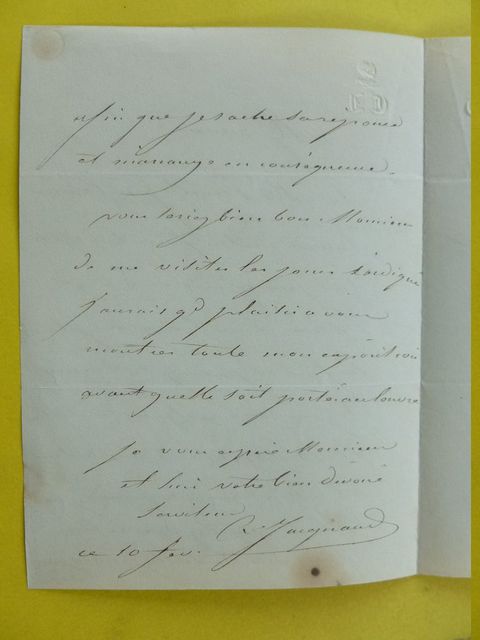 afin que je sache sa reponse
et m'arrange en conséquence.
vous seriez bien bon Monsieur
de me visiter les jours indiqué
j'aurais gd plaisir a vous
montrer toute mon exposition
avant quelle soit portée au louvre
Je vous Monsieur
et suis votre bien dévoué
Serviteur
C. Jacquand
ce 10 fev.